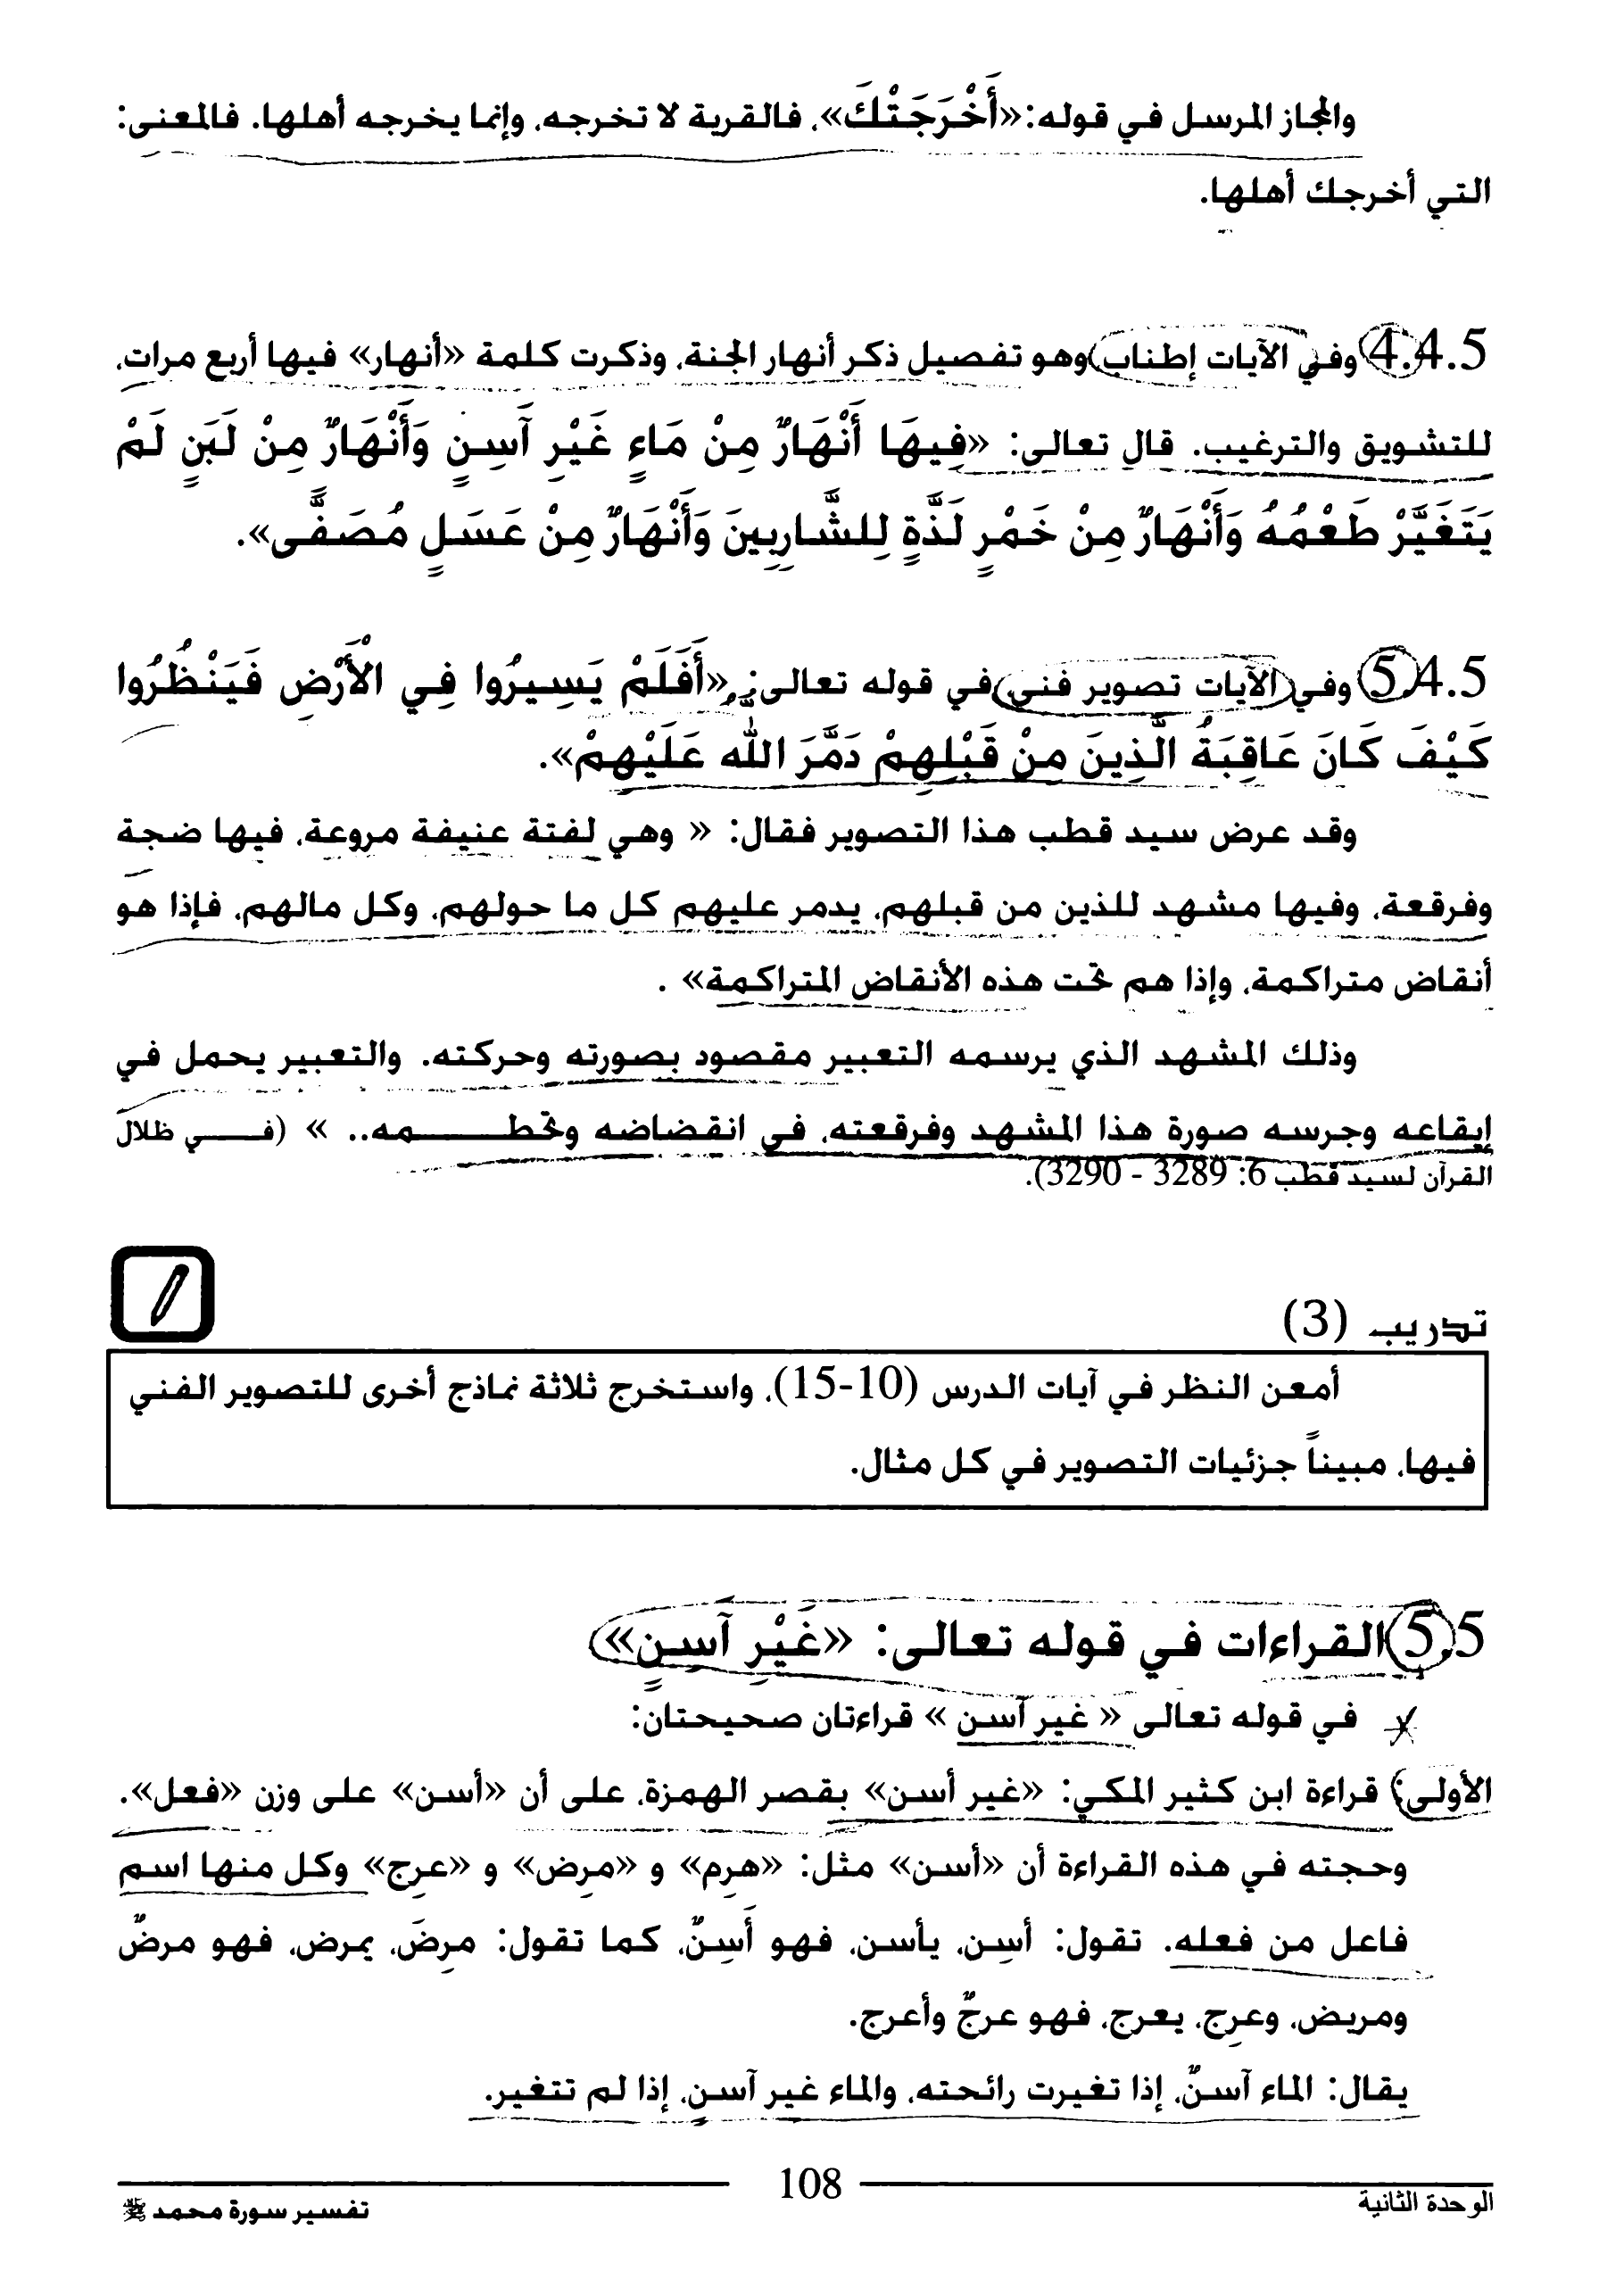 والمجاز المرسل في قوله: «أَخْرَجَتْكَ»، فالقرية لا تخرجه، وإنما يخرجه أهلها. فالمعنى:
التي أخرجك أهلها.
4.4.5 وفي الآيات إطناب، وهو تفصيل ذكر أنهار الجنة، وذكرت كلمة «أنهار» فيها أربع مرات،
للتشويق والترغيب. قال تعالى: «فِيهَا أَنْهَارٌ مِنْ مَاءٍ غَيْرِ آسِنٍ وَأَنْهَارٌ مِنْ لَبَنٍ لَمْ
يَتَغَيَّرْ طَعْمُهُ وَأَنْهَارٌ مِنْ خَمْرٍ لَذَّةٍ لِلشَّارِبِينَ وَأَنْهَارٌ مِنْ عَسَلٍ مُصَفًّى».
5.4.5 وفي الآيات تصوير فني، في قوله تعالى: «أَفَلَمْ يَسِيرُوا فِي الْأَرْضِ فَيَنْظُرُوا
كَيْفَ كَانَ عَاقِبَةُ الَّذِينَ مِنْ قَبْلِهِمْ دَمَّرَ اللهُ عَلَيْهِمْ».
وقد عرض سيد قطب هذا التصوير فقال: « وهي لفتة عنيفة مروعة، فيها ضجة
وفرقعة، وفيها مشهد للذين من قبلهم، يدمر عليهم كل ما حولهم، وكل مالهم، فإذا هو
أنقاض متراكمة، وإذا هم تحت هذه الأنقاض المتراكمة» .
وذلك المشهد الذي يرسمه التعبير مقصود بصورته وحركته. والتعبير يحمل في
إيقاعه وجرسه صورة هذا المشهد وفرقعته، في انقضاضه وتحطمه.. » (في ظلال
القرآن لسيد قطب 6: 3289 - 3290).
تدريب (3)
أمعن النظر في آيات الدرس (10-15)، واستخرج ثلاثة نماذج أخرى للتصوير الفني
فيها، مبيناً جزئيات التصوير في كل مثال.
5.5 القراءات في قوله تعالى: «غَيْرِ آسِنٍ»
في قوله تعالى « غير آسن » قراءتان صحيحتان:
الأولى: قراءة ابن كثير المكي: «غير أسن» بقصر الهمزة، على أن «أسن» على وزن «فعل».
وحجته في هذه القراءة أن «أسن» مثل: «هرِم» و «مرِض» و «عرِج» وكل منها اسم
فاعل من فعله. تقول: أسِن، يأسن، فهو أَسِنٌ، كما تقول: مرِضَ، يمرض، فهو مرضٌ
ومريض، وعرِج، يعرج، فهو عرجٌ وأعرج.
يقال: الماء آسنٌ، إذا تغيرت رائحته، والماء غير آسنٍ، إذا لم تتغير.
الوحدة الثانية
108
تفسير سورة محمد ﷺ